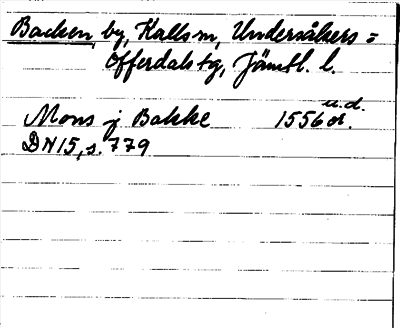 Backen, by, Kalls sn, Undersåkers =
Offerdals tg, Jämtl. l.
Mons j Bakke 1556 u.d.
DN 15, s. 779